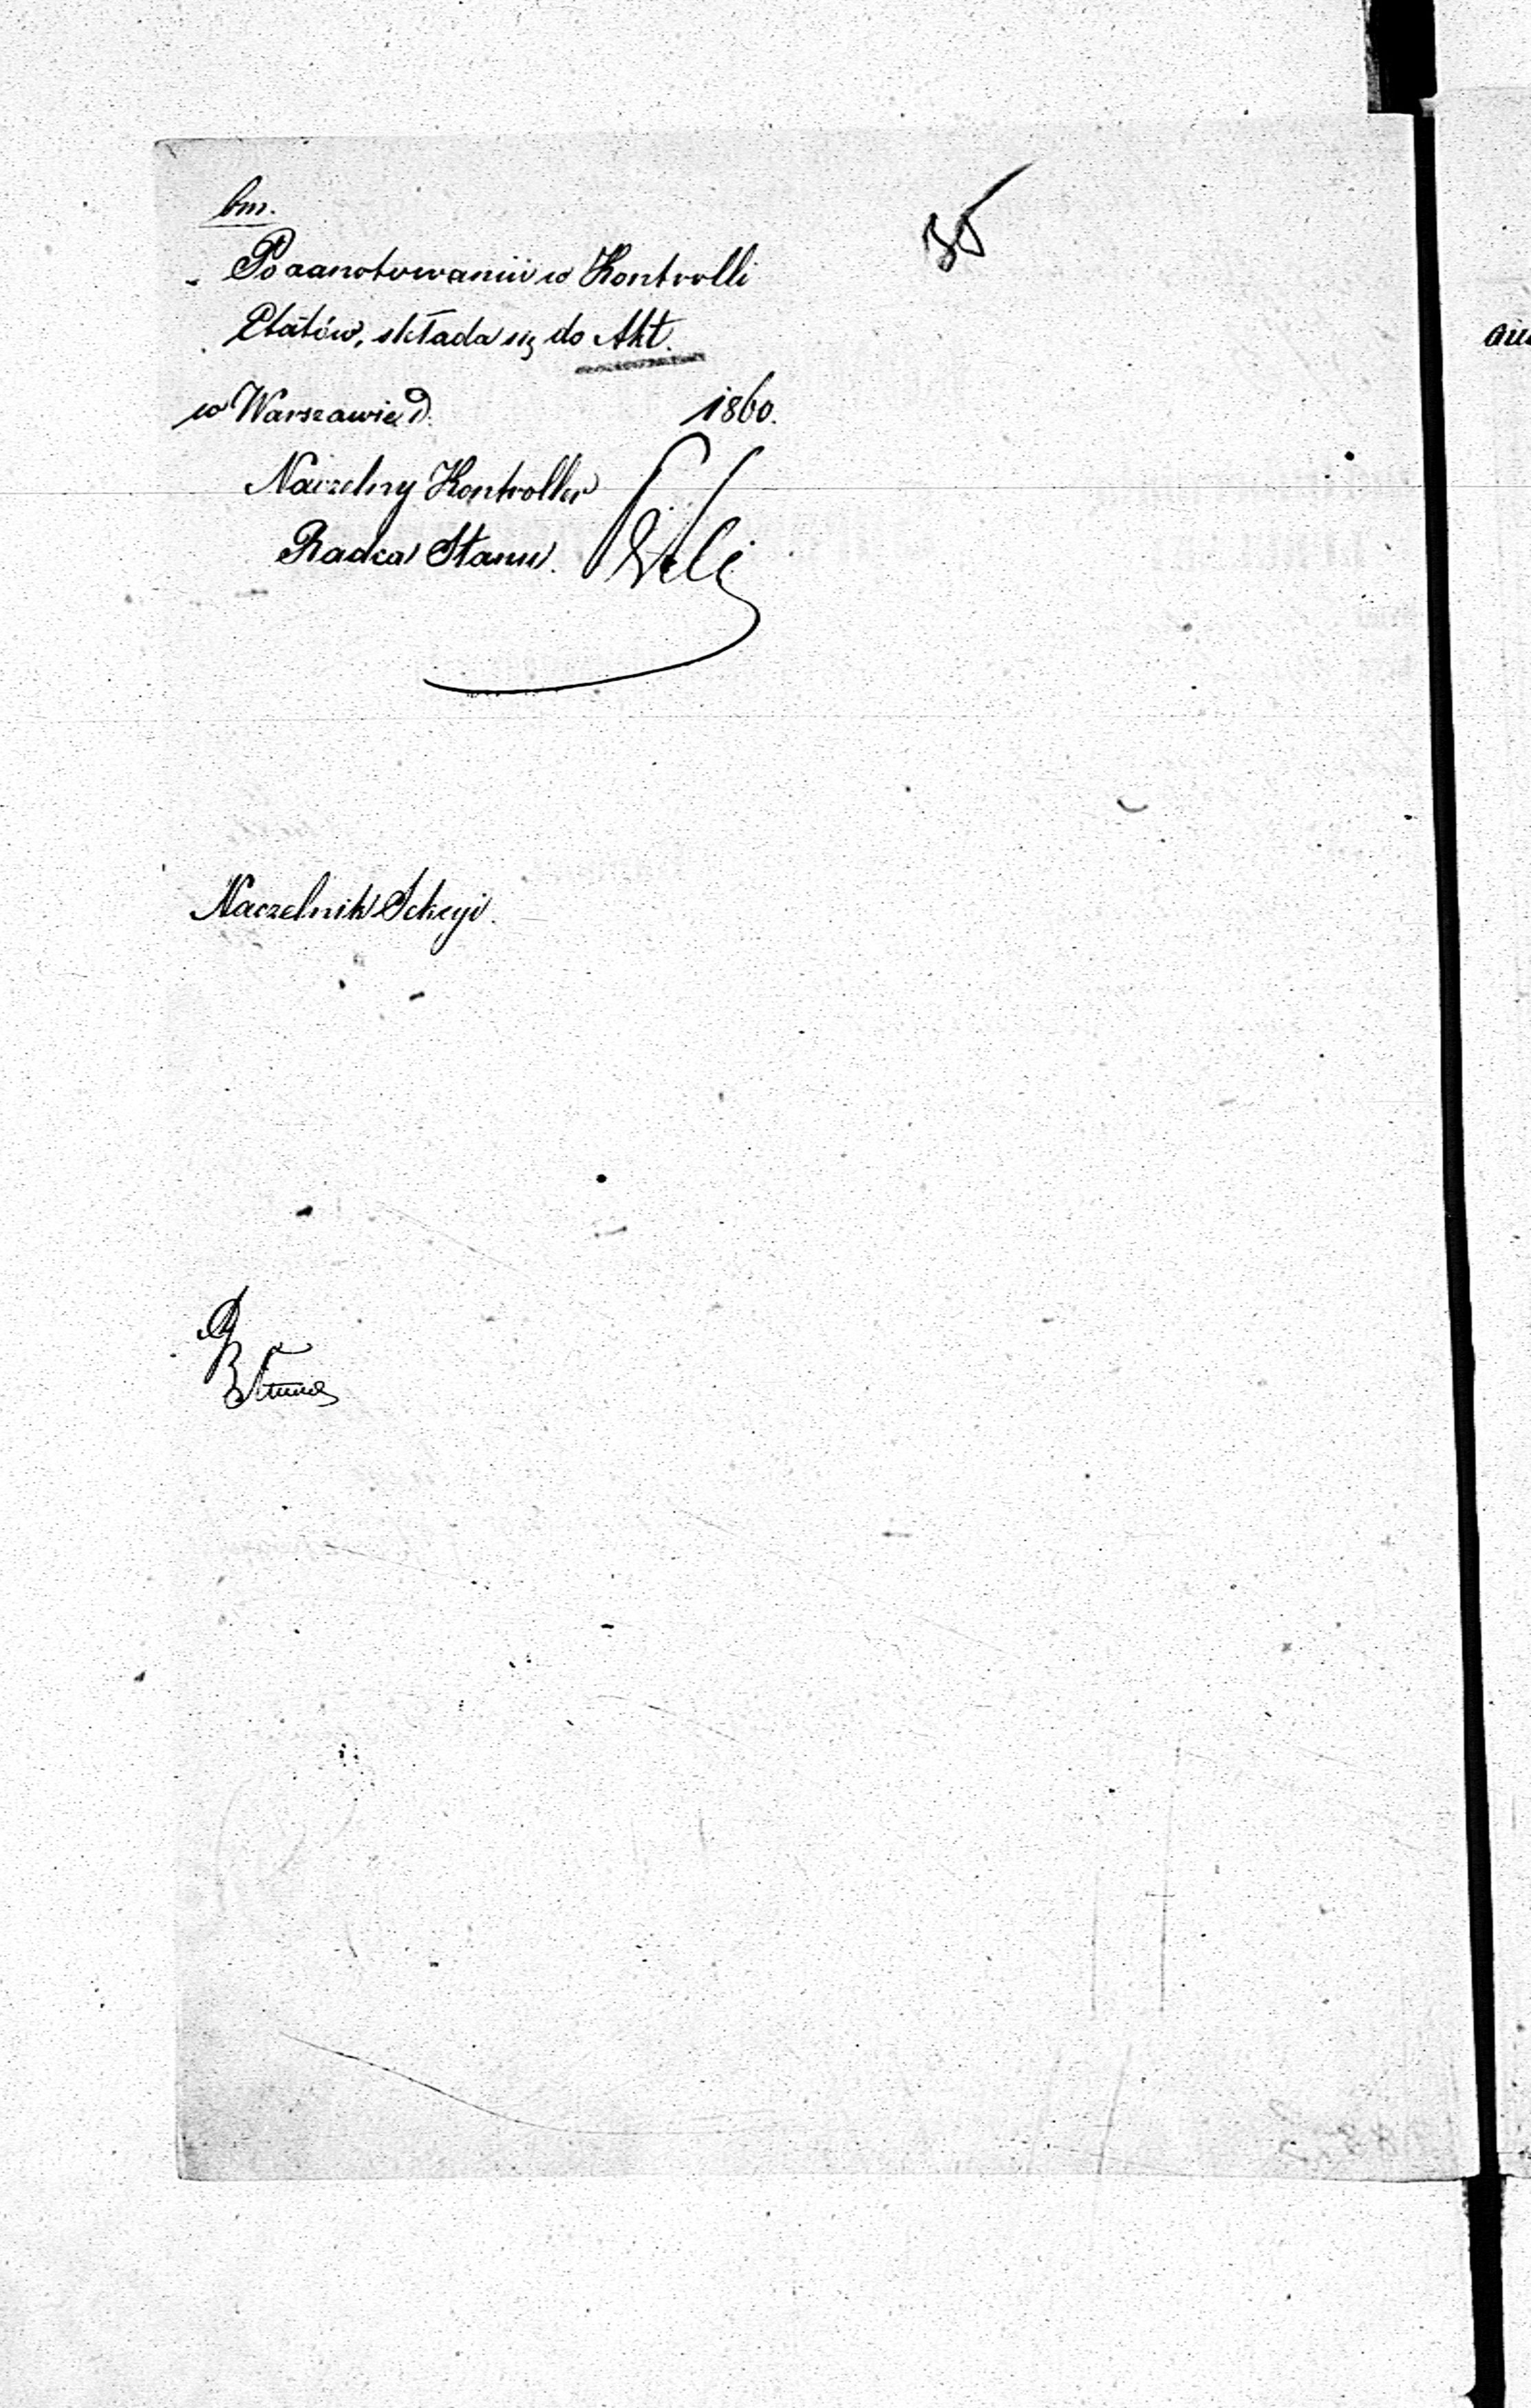 bm.
35
Po zanotowaniu w Kontrolli
Etatów, składa się do Akt.
w Warszawie D. 1860.
Naczelny Kontroller
Radca Stanu.
Naczelnik Sekcyi.